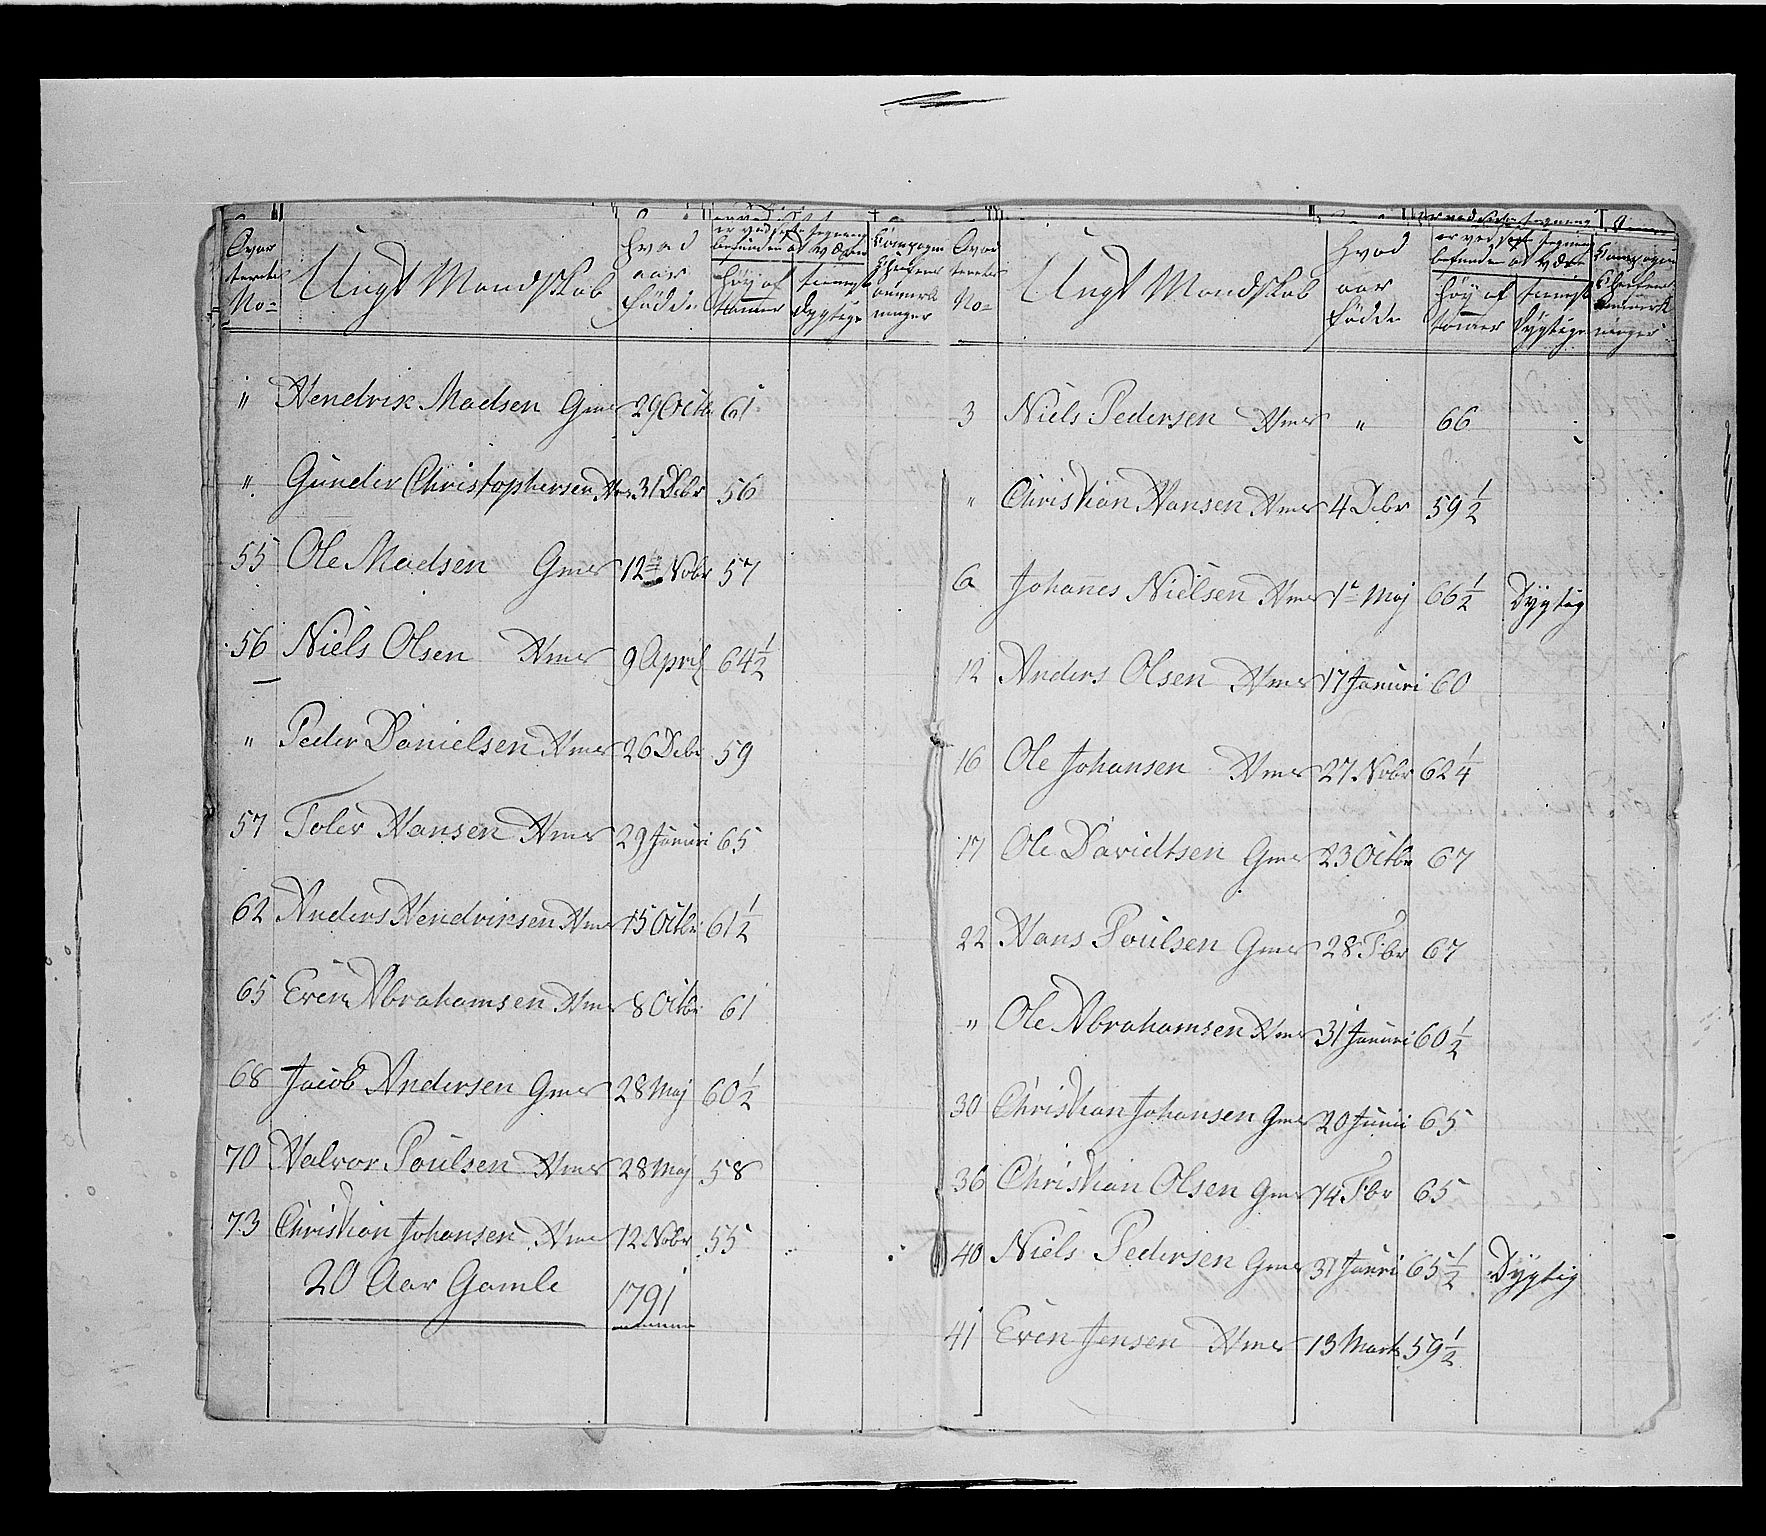 Qvar
teerets
No=
Ungt Mandskab
hvad
aar
fødde
er ved sesk tegning
befunden at være
høy af
tommer
tienest
dygtige
Compagni
Chefens
anmerk
ninger
" Hendrik Madsen Gmes 29 Octb 61
" Gunder Christophersen Hmes 31 Debr 56
55 Ole Madsen Gmes 12te Nobr 57
56 Niels Olsen Hmes 9 April 64 1/2
" Peder Danielsen Hmes 26 Debr 59
57 Toler Hansen Hmes 29 Januri 65
62 Anders Hendriksen Hmes 15 Octbr 61 1/2
65 Even Abrahamsen Hmes 8 Octbr 61
68 Jacob Andersen Gmes 28 Maj 60 1/2
70 Halvor Poulsen Hmes 28 Maj 58
73 Christian Johansen Hmes 12 Nobr 55
20 Aar Gamle 1791
Qvar
teerets
No=
Ungt Mandskab
hvad
aar
fødde
befunden at være
høy af
tommer
tienest
dygtige
Compagni
Chefens
anmerk
ninger
3 Niels Pedersen Hmes " 66
" Christian Hansen Hmes 4 Debr 59 1/2
6 Johanes Nielsen Hmes 1te Maj 66 1/2 Dygtig
12 Anders Olsen Hmes 17 Januri 60
16 Ole Johansen Hmes 27 Nobr 62 1/4
17 Ole Davidtsen Gmes 23 Octbr 67
22 Hans Poulsen Gmes 28 Fbr 67
" Ole Abrahamsen Hmes 31 Januri 60 1/2
30 Christian Johansen Gmes 20 Juni 65
36 Christian Olsen Gmes 14 Fbr 65
40 Niels Pedersen Gmes 31 Janri 65 1/2 Dygtig
41 Even Jensen Hmes 13 Marts 59 1/2